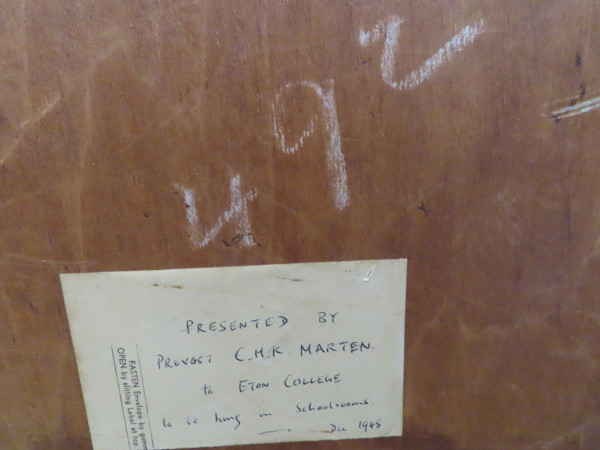 492
PRESENTED BY
PROVOST C.H.K. MARTEN
to ETON COLLEGE
to be hung in Schoolrooms.
Dec 1948
FASTEN Envelope by gumm
OPEN by slitting Label at top